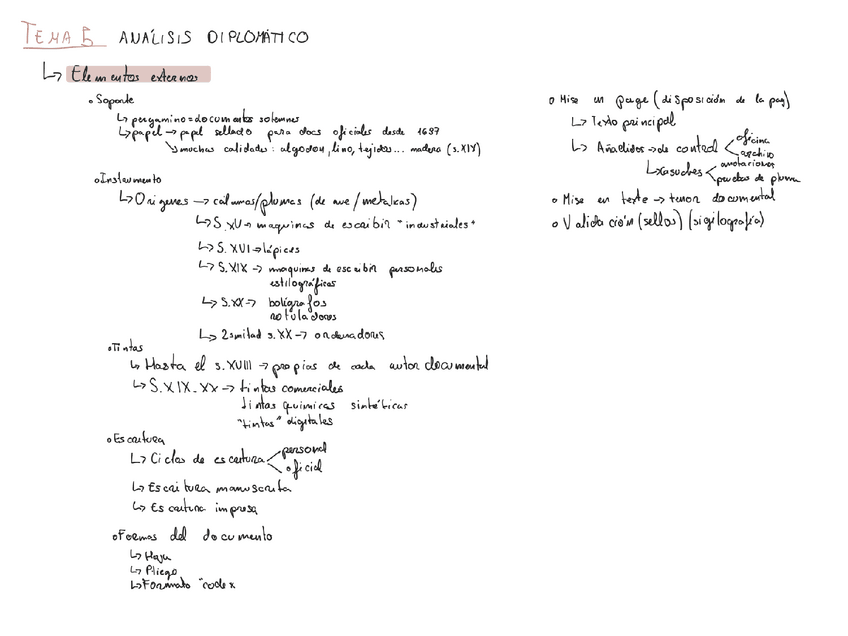 TEMA 5 ANÁLISIS DIPLOMÁTICO
↳ Elementos externos
• Soporte
↳ pergamino = documentos solemnes
↳ papel → papel sellado para docs oficiales desde 1637
↘ muchas calidades: algodon, lino, tejidos... madera (s.XIX)
• Instrumento
↳ Origenes → calamos/plumas (de ave/metalicas)
↳ S. XV → maquinas de escribir "industriales"
↳ S. XVI → lápices
↳ S. XIX → maquinas de escribir personales
estilográficas
↳ S. XX → bolígrafos
rotuladores
↳ 2ª mitad s. XX → ordenadores
• Tintas
↳ Hasta el s. XVIII → propias de cada autor documental
↳ S. XIX-XX → tintas comerciales
tintas químicas sintéticas
"tintas" digitales
• Escritura
↳ Ciclos de escritura < personal
oficial
↳ Escritura manuscrita
↳ Escritura impresa
• Formas del documento
↳ Hoja
↳ Pliego
↳ Formato "codex
• Mise en page (disposición de la pag)
↳ Texto principal
↳ Añadidos → de control < oficina
archivo
↳ casuales < anotaciones
pruebas de pluma
• Mise en texte → tenor documental
• Validación (sellos) (sigilografía)